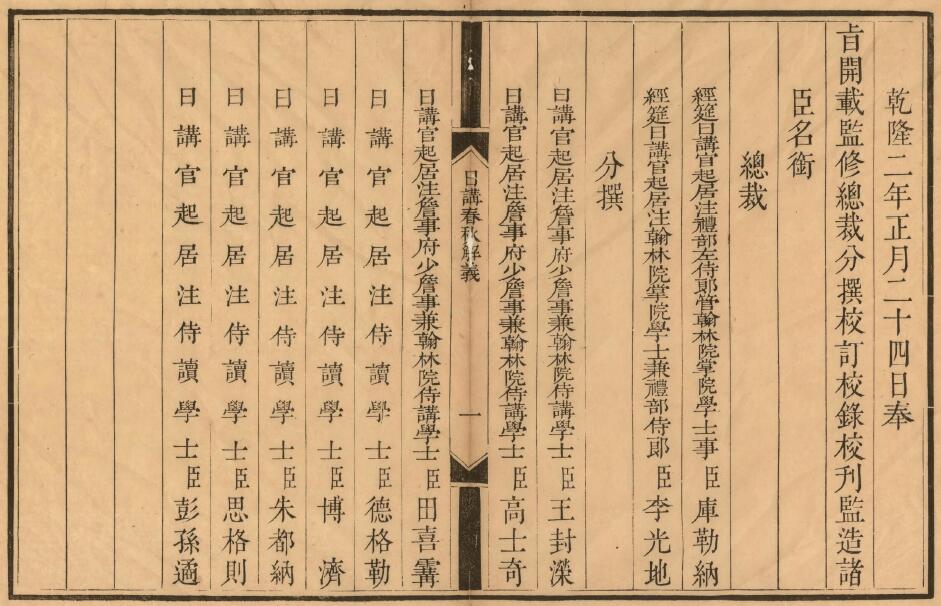 乾隆二年正月二十四日奉
旨開載監修總裁分撰校訂校錄校刊監造諸
臣名銜
總裁
經筵日講官起居注禮部左侍郎管翰林院掌院學士事臣庫勒納
經筵日講官起居注翰林院掌院學士兼禮部侍郎臣李光地
分撰
日講官起居注詹事府少詹事兼翰林院侍講學士臣王封濚
日講官起居注詹事府少詹事兼翰林院侍講學士臣高士奇
日講春秋解義
一
日講官起居注詹事府少詹事兼翰林院侍講學士臣田喜霱
日講官起居注侍讀學士臣德格勒
日講官起居注侍讀學士臣博濟
日講官起居注侍讀學士臣朱都納
日講官起居注侍讀學士臣思格則
日講官起居注侍讀學士臣彭孫遹